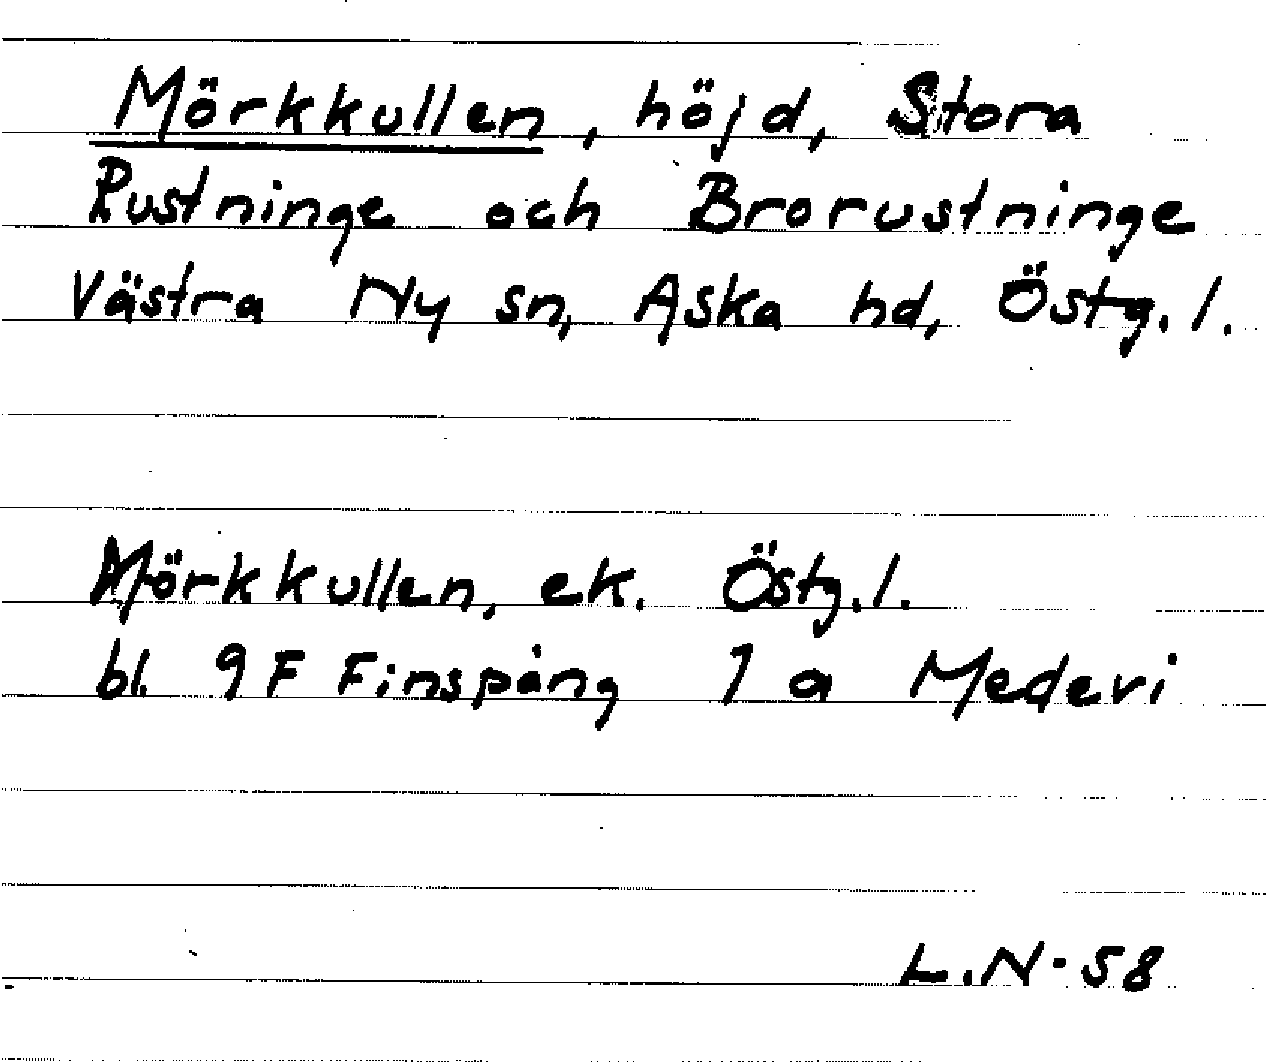 Mörkkullen, höjd, Stora
Rustninge och Brorustninge
Västra Ny sn, Aska hd, Östg.l.
Mörkkullen, ek. Östg.l.
bl. 9F Finspång 7 a Medevi
L.N-58